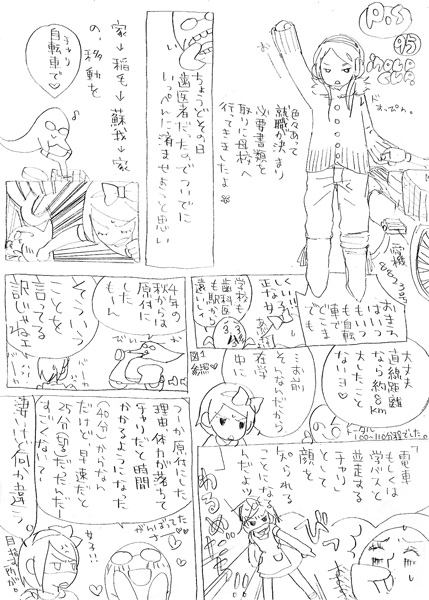 P.S
95
色々あって
就職が決まり
必要書類を
取りに母校へ
行ってきましたよ
ちょうどその日
歯医者だったのでついでに
いっぺんに済ませようと思い
家→稲毛→蘇我→家
の、移動を
チャリ
自転車で♡
愛機
おまえ
はいつ
も自転
車で
でも
くぃいー
正な女子
学校も
歯科医
も駅から
遠いし
4年の
秋からは
原付に
したも
んー
そういう
ことを
言ってる
訳じゃねェ
大丈夫
直線距離
なら約8km
大したこと
ないヨ♡
トータル
100〜110分程でした。
…お前
そんなんだから
在学
中に
図1
参照♡
電車
もしくは
学バスと
並走する
「チャリ」
として
顔を
知られる
ことになる
んだよッ
やめるぁ
つーか原付にした
理由、体力が落ちて
チャリだと時間
かかるようになった
(40分)からな
だけど、早速だと
25分切るだんだー
すごくない?
がんばってた
女子!!
凄いけど何か違う。
目指す所が。